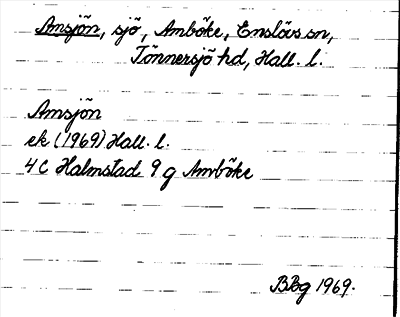 Amsjön, sjö, Amböke, Enslövs sn,
Tönnersjö hd, Hall. l.
Amsjön
ek (1969) Hall. l.
4C Halmstad 9 g Amböke
BBg 1969.